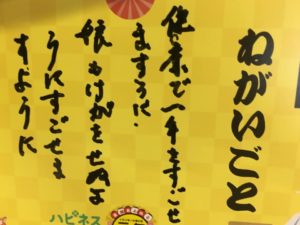 ねがいごと
健康で一年をすごせ
ますように
娘もけがをせぬよ
うにすごせま
すように
ハピネス